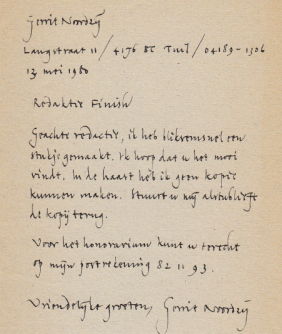 Gerrit Noordzij
Langstraat 11 / 4176 BC Tuil / 04189-1306
13 mei 1980
Redaktie Finish
Geachte redactie, ik heb bliksemsnel een
stukje gemaakt. Ik hoop dat u het mooi
vindt. In de haast heb ik geen kopie
kunnen maken. Stuurt u mij alstublieft
de kopij terug.
Voor het honorarium kunt u terecht
op mijn postrekening 82 11 93.
Vriendelijke groeten, Gerrit Noordzij